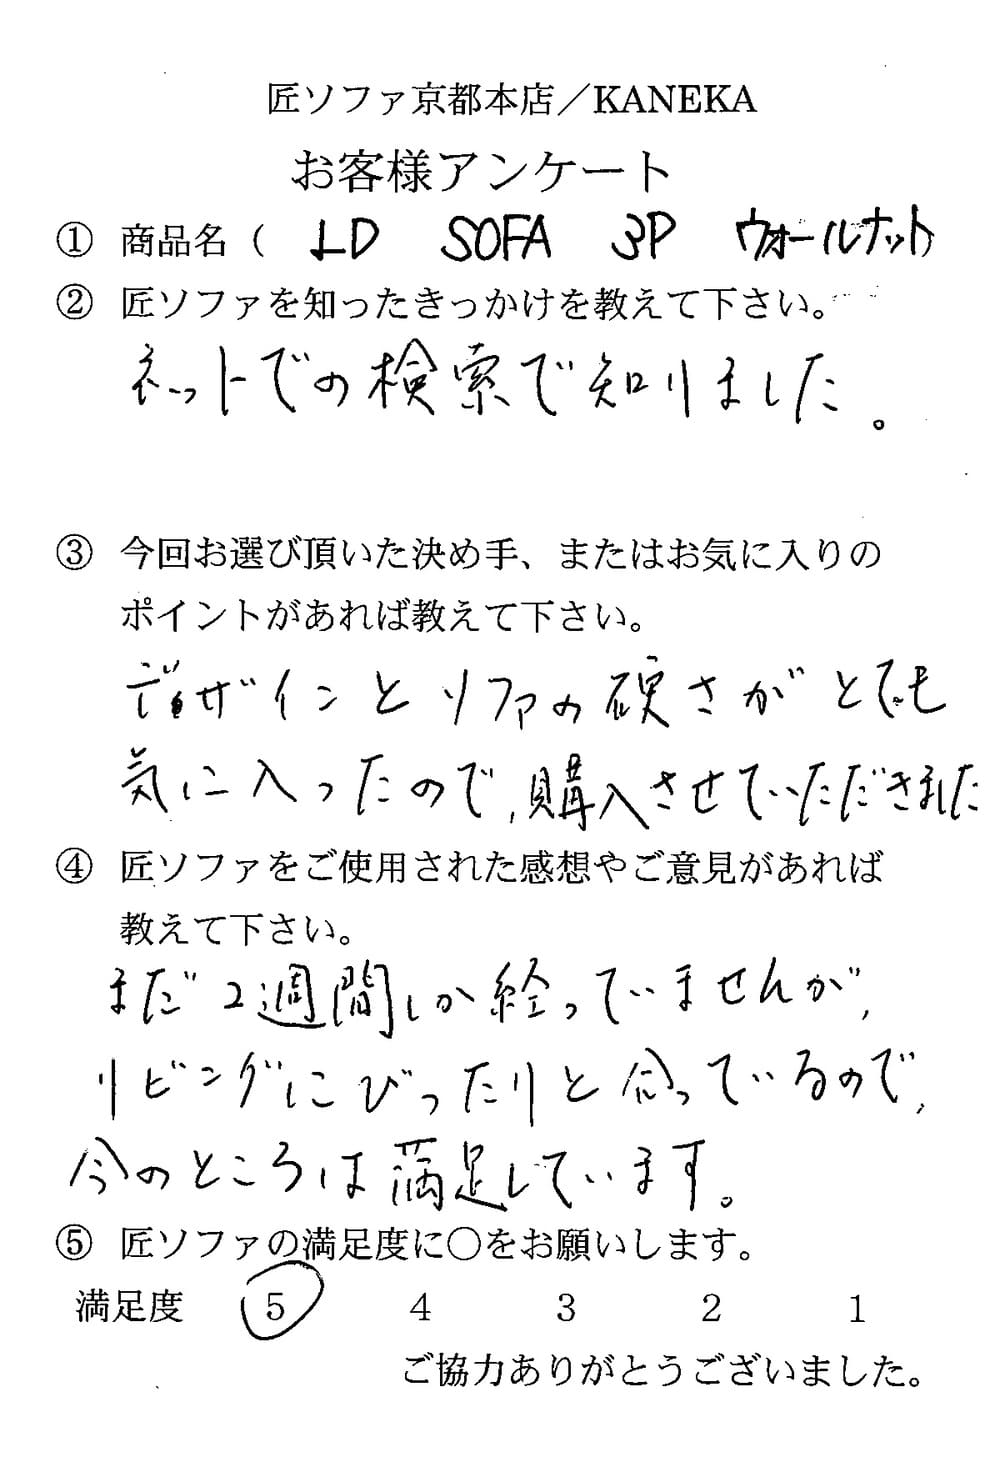 匠ソファ京都本店／KANEKA
お客様アンケート
① 商品名（ LD SOFA 3P ウォールナット）
② 匠ソファを知ったきっかけを教えて下さい。
ネットでの検索で知りました。
③ 今回お選び頂いた決め手、またはお気に入りの
ポイントがあれば教えて下さい。
デザインとソファの硬さがとても
気に入ったので、購入させていただきました
④ 匠ソファをご使用された感想やご意見があれば
教えて下さい。
まだ2週間しか経っていませんが、
リビングにぴったりと合っているので、
今のところは満足しています。
⑤ 匠ソファの満足度に〇をお願いします。
満足度 5 4 3 2 1
ご協力ありがとうございました。